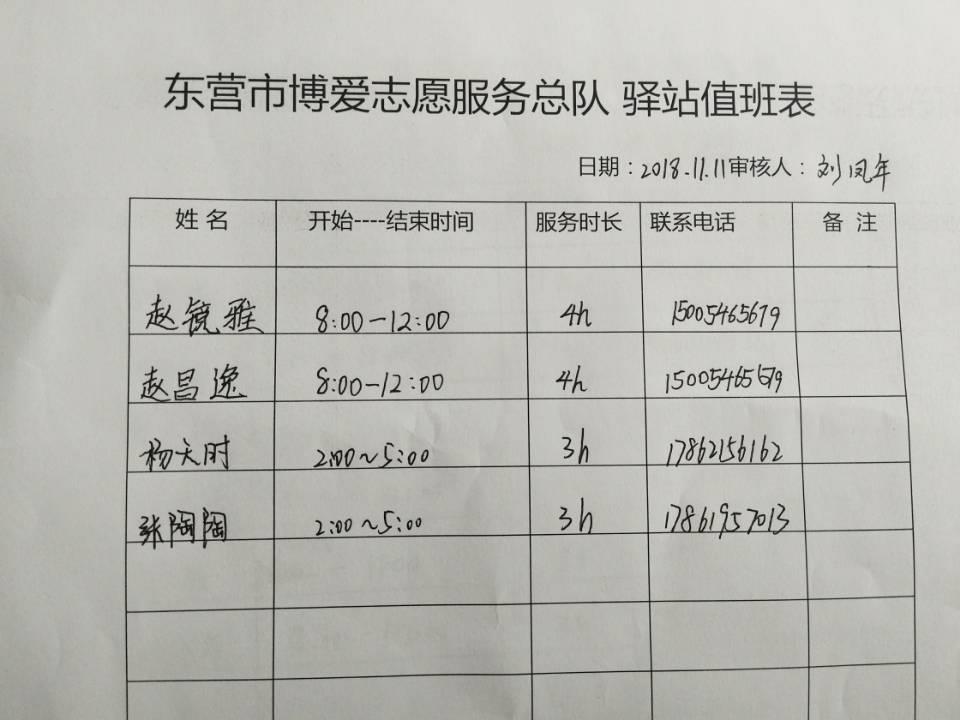 东营市博爱志愿服务总队 驿站值班表
日期：2018.11.11 审核人：刘凤年
姓 名 开始----结束时间 服务时长 联系电话 备 注
赵镜雅 8:00-12:00 4h 15005465679
赵昌逸 8:00-12:00 4h 15005465679
杨天时 2:00~5:00 3h 17862156162
张陶陶 2:00~5:00 3h 17861957013